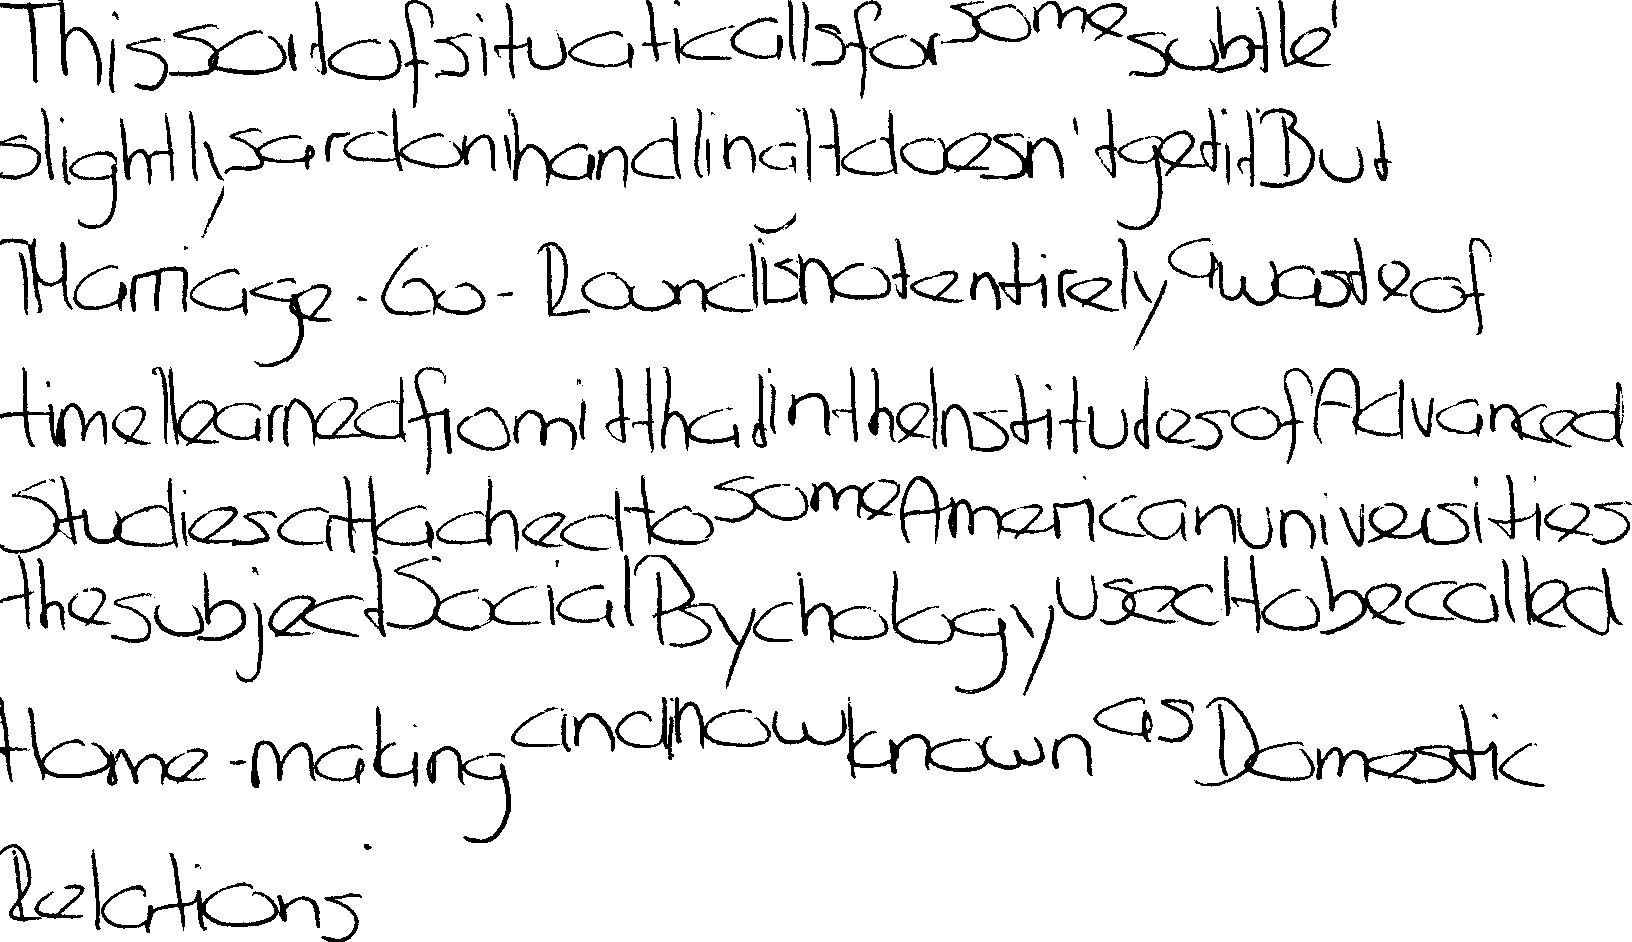 This sort of situati calls for some subtle'
slightly, sardoni handlin It doesn't get it But
" Marriage - Go - Round is not entirely a waste of
time I learned from it that in the Institutes of Advanced
Studies attached to some American universities
the subject Social Psychology used to be called
Home - making and now known as Domestic
Relations.